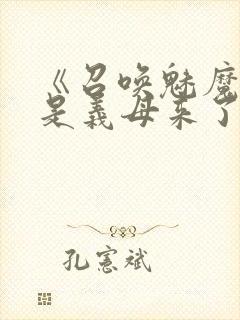 《召唤魅魔
是义母来了
孔宪斌